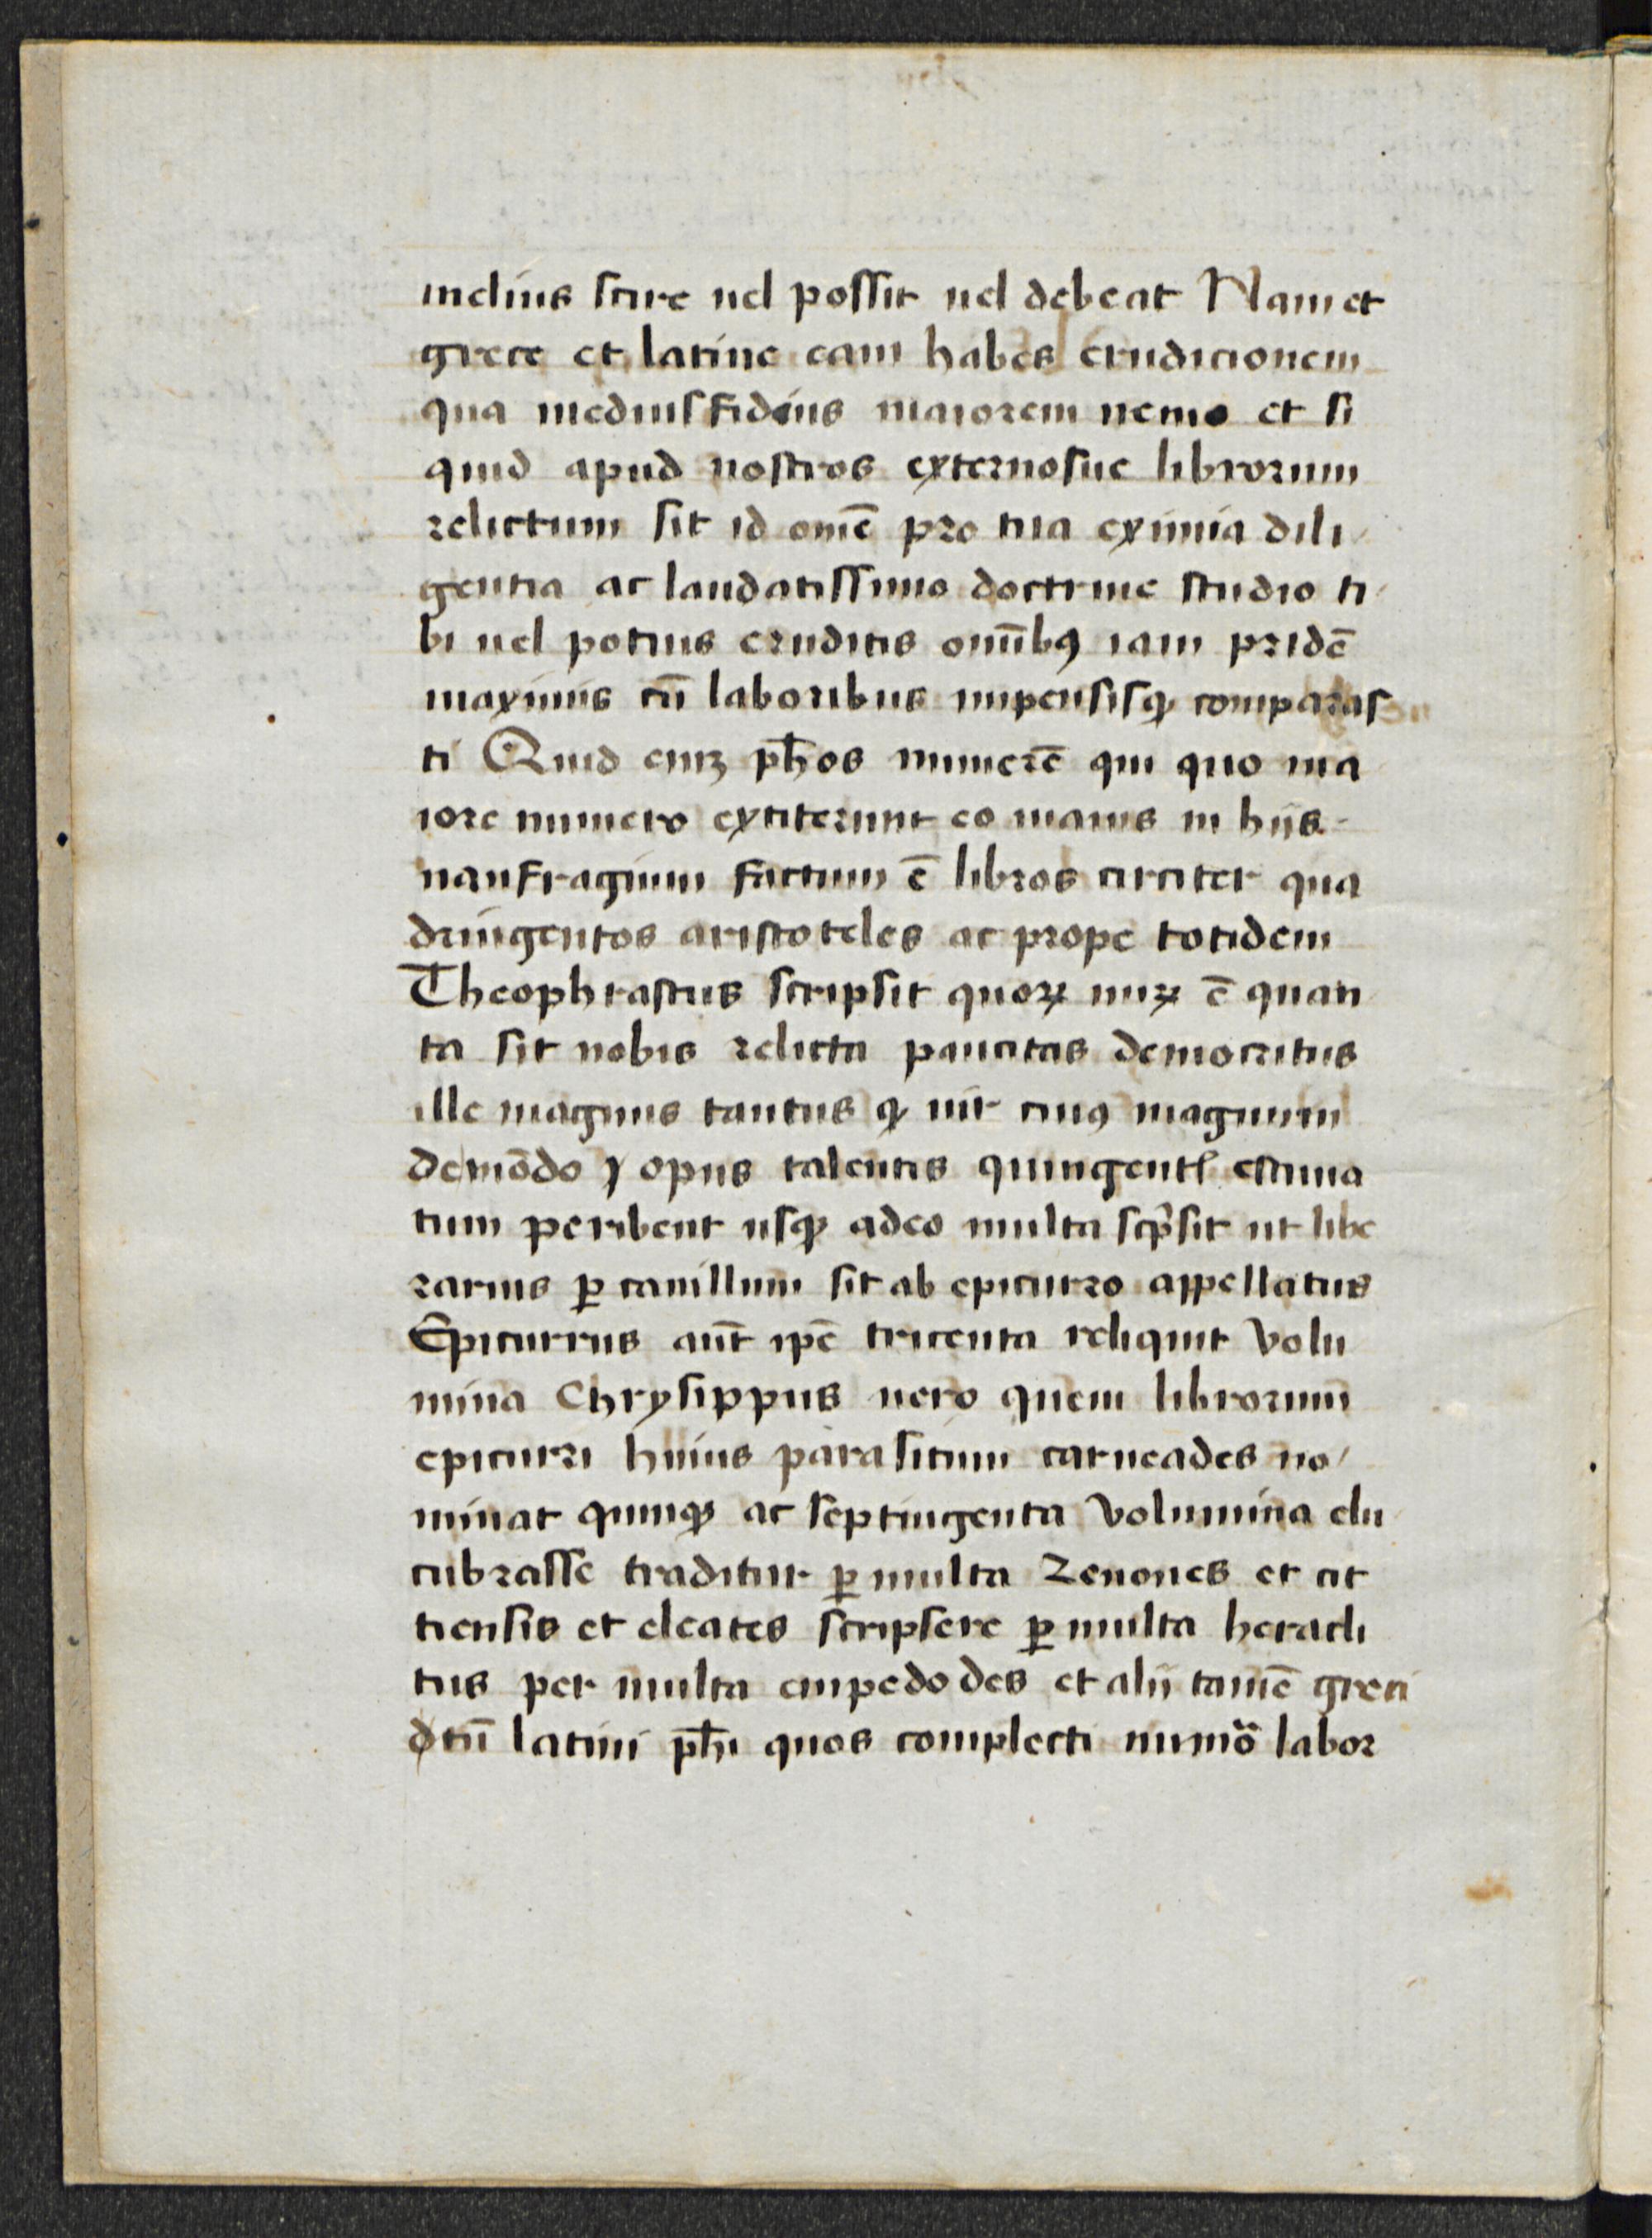 melius scire uel possit uel debeat Nam et
grece et latine eam habes erudicionem
qua mediusfidius maiorem nemo et si
quid apud nostros externosue librorum
relictum sit id om̄ē pro tua eximia dili
gentia ac laudatissimo doctrine studio ti
bi uel potius eruditis om̄ibꝰ iam pridē
maximis cū laboribus impensisqꝫ comparas
ti Quid enīꝫ ph̄os numerē qui quo ma
iore numero extiterunt eo maius in hijs
naufragium factum ē libros circiter qua
dringentos aristoteles ac prope totidem
Theophrastus scripsit quoꝝ miꝝ ē quan
ta sit nobis relicta paucitas democritus
ille magnus tantus qꝫ uir cuiꝰ magnum
demōdo opus talentis quingentꝭ estima
tum peribent usqꝫ adeo multa scͥpsit ut libe
rarius ꝑ cauillum sit ab epicurro appellatus
Epicurrus aūt ip̄e tricenta reliquit volu
mina Chrysippus uero quem librorum
epicurri huius parasitum carneades no
minat quinqꝫ ac septingenta volumina elu
cubrasse traditur ꝑ multa Zenones et cit
tiensis et eleates scripsere ꝑ multa heracli
tus per multa empedocles et alij tamē greci
tū latini ph̄i quos complecti nimō labor